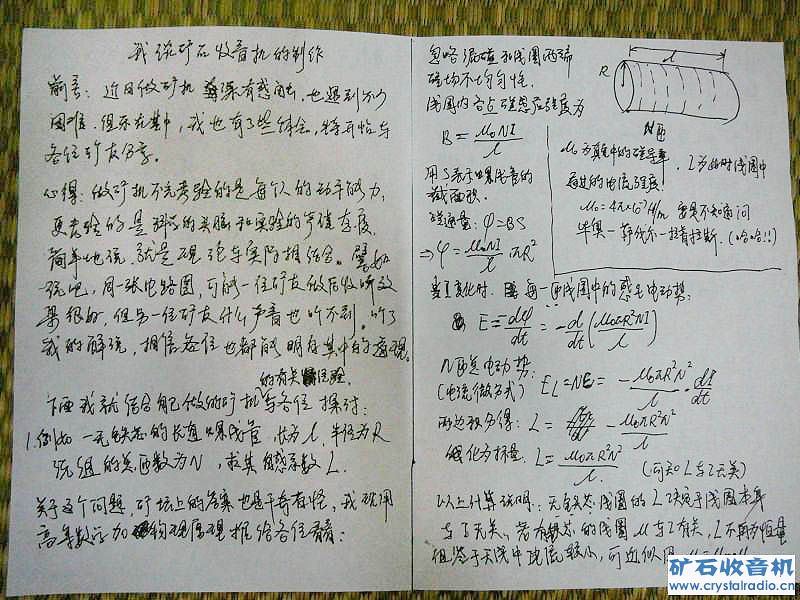 我谈矿石收音机的制作
前言：近日做矿机深有感触，也遇到不少
困难，但乐在其中，我也有了些体会，特再恰与
各位矿友分享。
心得：做矿机不光考验的是每个人的动手能力，
更考验的是科学的头脑和实验的节俭态度，
简单地说就是理论与实际相结合。譬如
说吧，同一张电路图，可能一位矿友做后收听效
果很好，但另一位矿友什么声音也听不到。听了
我的解说，相信各位也都能明白其中的道理。
下面我就结合自己做的矿机的有关经验与各位探讨：
1.例如 一无铁芯的长直螺线管，长为l，半径为R
绕组的总匝数为N，求其自感系数L.
关于这个问题，矿坛上的答案也是千奇百怪，我现用
高等数学加物理原理推给各位看看：
忽略漏磁和线圈两端
磁场不均匀性.
线圈内各点磁感应强度为
B = μ₀NI/l
用S表示螺线管的
截面积.
磁通量：φ=BS
⇒φ= μ₀NI/l πR²
l
R
N匝
μ₀为真空中的磁导率，I为此时线圈中
通过的电流强度！
μ₀=4π×10⁻⁷H/m 要是不知道问
毕奥—萨伐尔—拉普拉斯.（哈哈!!）
当I变化时，每一匝线圈中的感生电动势：
E=-dφ/dt = -d/dt(μ₀πR²NI/l)
N匝总电动势：
(电流微分式) EL=NE= -μ₀πR²N²/l · dI/dt
两边积分得：L= -μ₀πR²N²/l
纯化为标量. L= μ₀πR²N²/l. (可知L与I无关)
以上计算说明：无铁芯线圈的L取决于线圈本身
与I无关，若有铁芯的线圈μ与I有关，L不再为恒量
但鉴于天线中电流较小，可近似
矿石收音机
www.crystalradio.cn